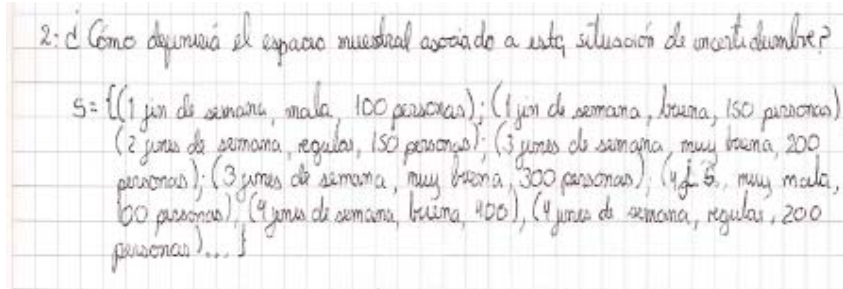 2: ¿ Cómo definiría el espacio muestral asociado a esta situación de incertidumbre?
S= {(1 fin de semana, mala, 100 personas); (1 fin de semana, buena, 150 personas)
(2 fines de semana, regular, 150 personas); (3 fines de semana, muy buena, 200
personas); (3 fines de semana, muy buena, 300 personas); (4 f. S., muy mala,
60 personas), (4 fines de semana, buena, 400), (4 fines de semana, regular, 200
personas)... }